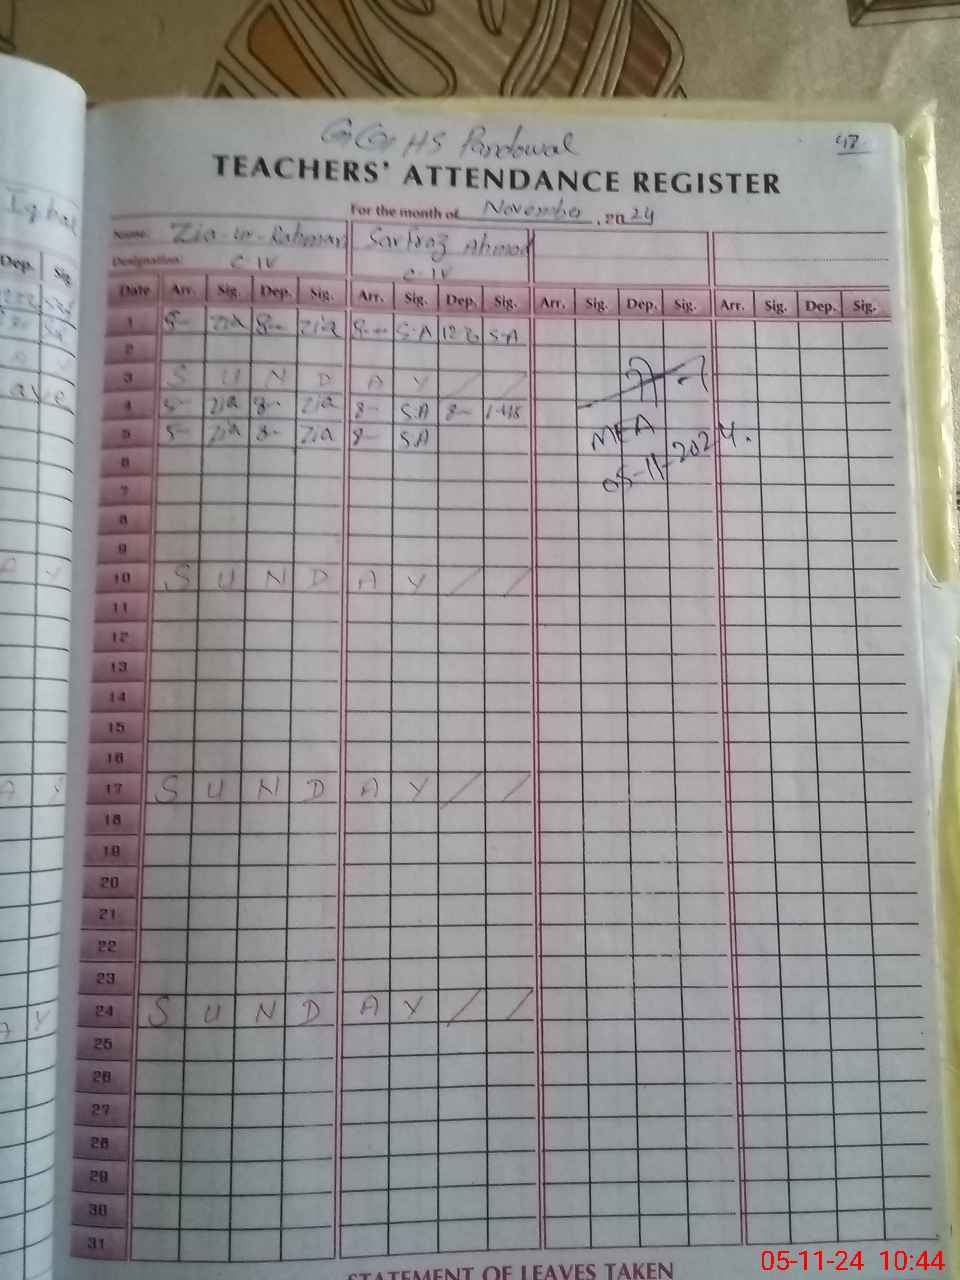 GGHS Pandowal
47
TEACHERS' ATTENDANCE REGISTER
For the month of November, 2024
Name: Zia-ur-Rahman Sarfraz Ahmad
Designation: C-IV C-IV
Iqbal
Dep. Sig.
Date Arr. Sig. Dep. Sig. Arr. Sig. Dep. Sig. Arr. Sig. Dep. Sig. Arr. Sig. Dep. Sig.
1 Zia 8- Zia 8- S.A S.A
2
3 S U N D A Y / /
4 Zia 8- Zia 8- S.A 8-
5 Zia 8- Zia 8- S.A
MEA
05-11-2024.
6
7
8
9
10 S U N D A Y / /
11
12
13
14
15
16
17 S U N D A Y / /
18
19
20
21
22
23
24 S U N D A Y / /
25
26
27
28
29
30
31
STATEMENT OF LEAVES TAKEN
05-11-24 10:44